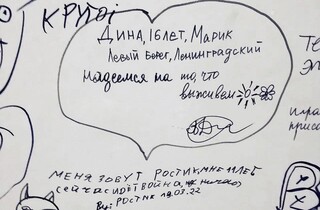 КРУТО
ДИНА, 16 ЛЕТ, МАРИК
ЛЕВЫЙ БЕРЕГ, ЛЕНИНГРАДСКИЙ
Надеемся на то, что
выживем
МЕНЯ ЗОВУТ РОСТИК МНЕ 11 ЛЕТ
сейчас идёт война
By: РОСТИК 19.03.22